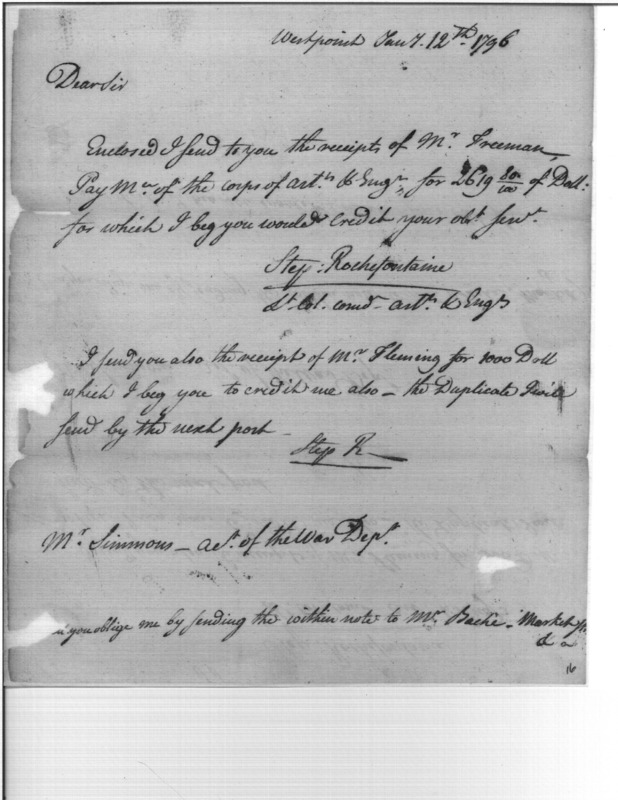 Westpoint Jany. 12th. 1796
Dear Sir
Enclosed I send to you the receipts of Mr. Freeman,
Pay Mr. of the corps of arts. & Engrs, for 2619 80/100 of Doll:
for which I beg you would credit your obt. servt.
Step. Rochefontaine
Lt. Col. comdt arts. & Engrs
I send you also the receipt of Mr. Fleming for 1000 Doll
which I beg you to credit me also — the Duplicate I will
send by the next post —
Step R—
Mr. Simmons — act. of the War Dept.
you oblige me by sending the within note to Mr. Bache - Market St.
16